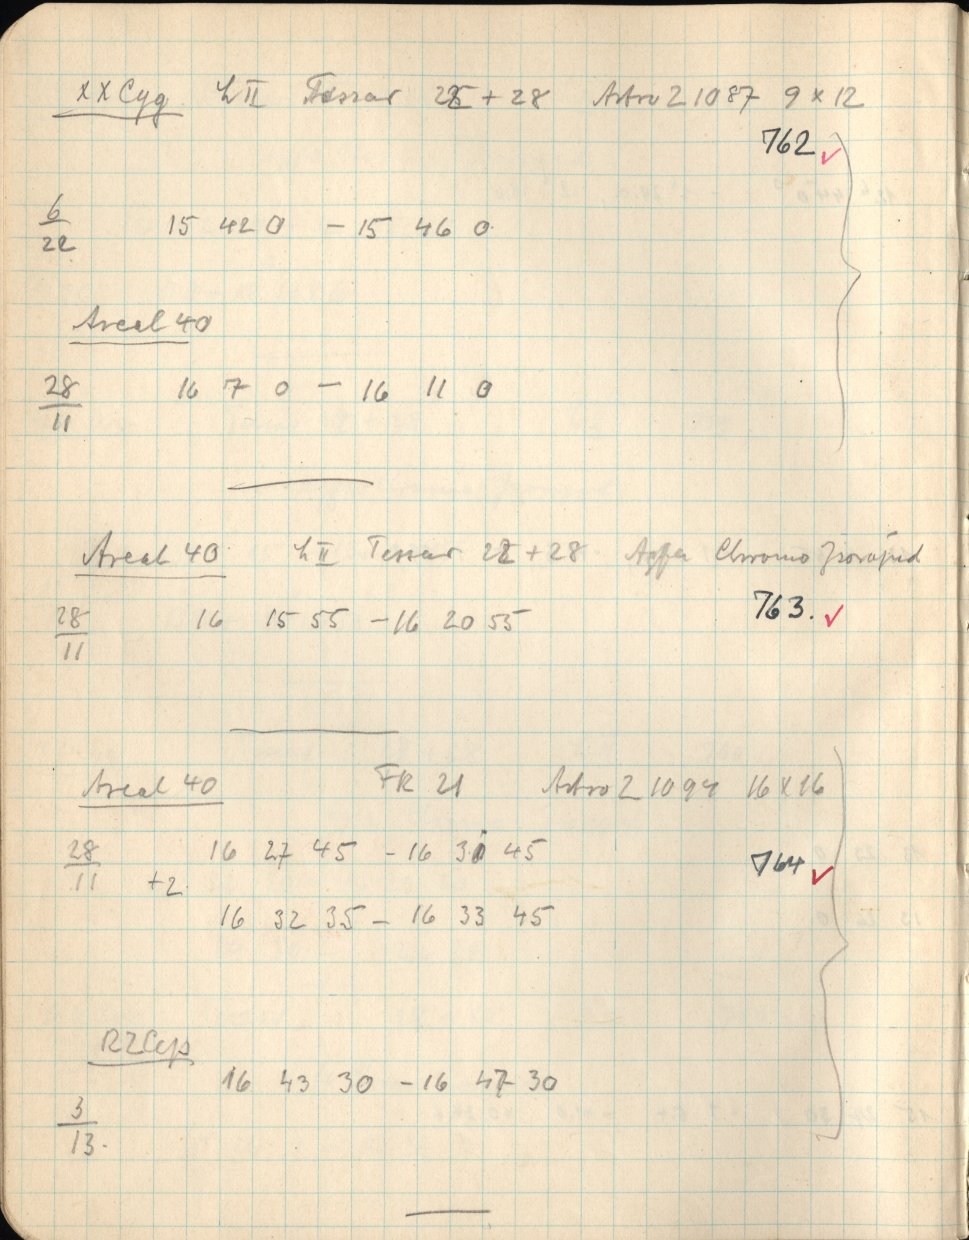 XX Cyg h II Tessar 28 + 28 Astro Z 1087 9 x 12
762 ✓
6/22 15 42 0 – 15 46 0
Areal 40
28/11 16 7 0 – 16 11 0
Areal 40 h II Tessar 22 + 28 Agfa Chromo Isorapid
763. ✓
28/11 16 15 55 – 16 20 55
Areal 40 FK 21 Astro Z 1094 16 x 16
28/11 16 27 45 – 16 31 45
764 ✓
+2
16 32 35 – 16 33 45
RZ Cep
16 43 30 – 16 47 30
3/13.